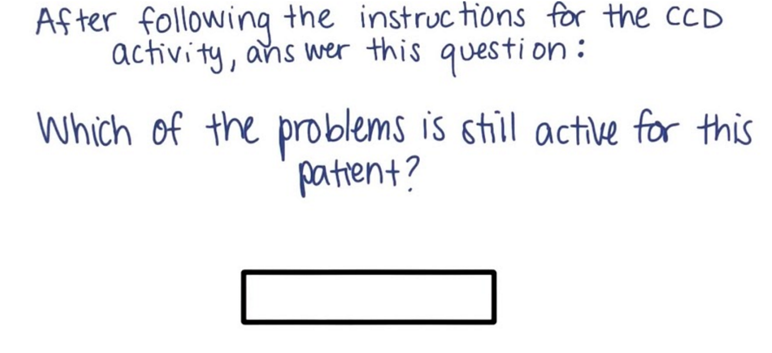 After following the instructions for the CCD
activity, answer this question:
Which of the problems is still active for this
patient?